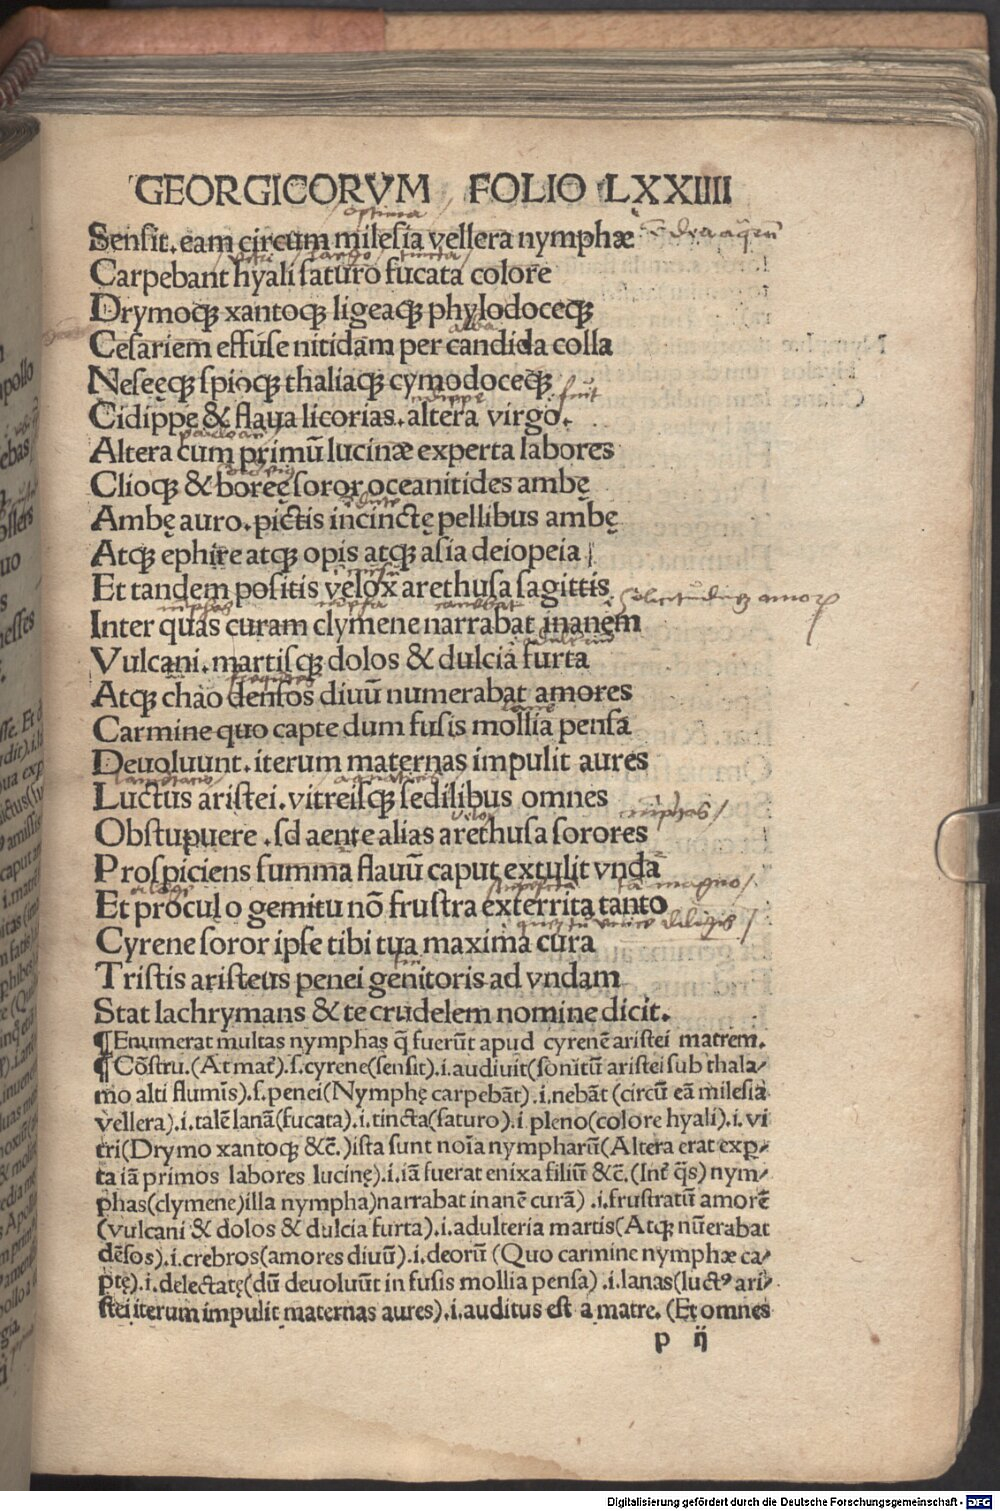 GEORGICORVM FOLIO LXXIIII
optima
Senſit. eam circum mileſia vellera nymphæ
Carpebant hyali ſaturo fucata colore
Drymoqꝫ xantoqꝫ ligeaqꝫ phylodoceqꝫ
alba
Ceſariem effuſe nitidam per candida colla
Neſeęqꝫ ſpioqꝫ thaliaqꝫ cymodoceqꝫ
fuit
Cidippe & flaua licorias. altera virgo.
Altera cum primū lucinæ experta labores
Clioqꝫ & boreę ſoror oceanitides ambę
Ambę auro. pictis incinctę pellibus ambę
Atqꝫ ephire atqꝫ opis atqꝫ aſia deiopeia
Et tandem poſitis velox arethuſa ſagittis
Inter quas curam clymene narrabat inanem
Vulcani. martiſqꝫ dolos & dulcia furta
Atqꝫ chao denſos diuū numerabat amores
Carmine quo capte dum fuſis mollia penſa
Deuoluunt. iterum maternas impulit aures
Luctus ariſtei. vitreiſqꝫ ſedilibus omnes
Obſtupuere . ſd aente alias arethuſa ſorores
Proſpiciens ſumma flauū caput extulit vnda
Et procul o gemitu nō fruſtra exterrita tanto
Cyrene ſoror ipſe tibi tua maxima cura
Triſtis ariſteus penei genitoris ad vndam
Stat lachrymans & te crudelem nomine dicit.
¶ Enumerat multas nymphas q̄ fuerūt apud cyrenē ariſtei matrem.
¶ Cōſtru. (At mat᷑).ſ. cyrene(ſenſit).i.audiuit(ſonitū ariſtei ſub thala⸗
mo alti flumīs).ſ. penei(Nymphę carpebāt).i.nebāt (circū eā mileſia
vellera).i.talē lanā(fucata).i.tincta(ſaturo).i pleno(colore hyali).i.vi
tri(Drymo xantoqꝫ &c̄.)iſta ſunt noīa nympharū(Altera erat exp̲⸗
ta iā primos labores lucinę).i.iā fuerat enixa filiū &c̄.(Int᷑ q̄s) nym⸗
phas(clymene)illa nympha)narrabat inanē curā) .i.fruſtratū amorē
(vulcani & dolos & dulcia furta).i.adulteria martis(Atqꝫ nūerabat
dēſos).i.crebros(amores diuū).i.deorū (Quo carmine nymphæ ca⸗
ptę).i.delectatę(dū deuoluūt in fuſis mollia penſa) .i.lanas(luctꝰ ari⸗
ſtei iterum impulit maternas aures).i.auditus eſt a matre. (Et omnes
p ij
Digitalisierung gefördert durch die Deutsche Forschungsgemeinschaft - DFG